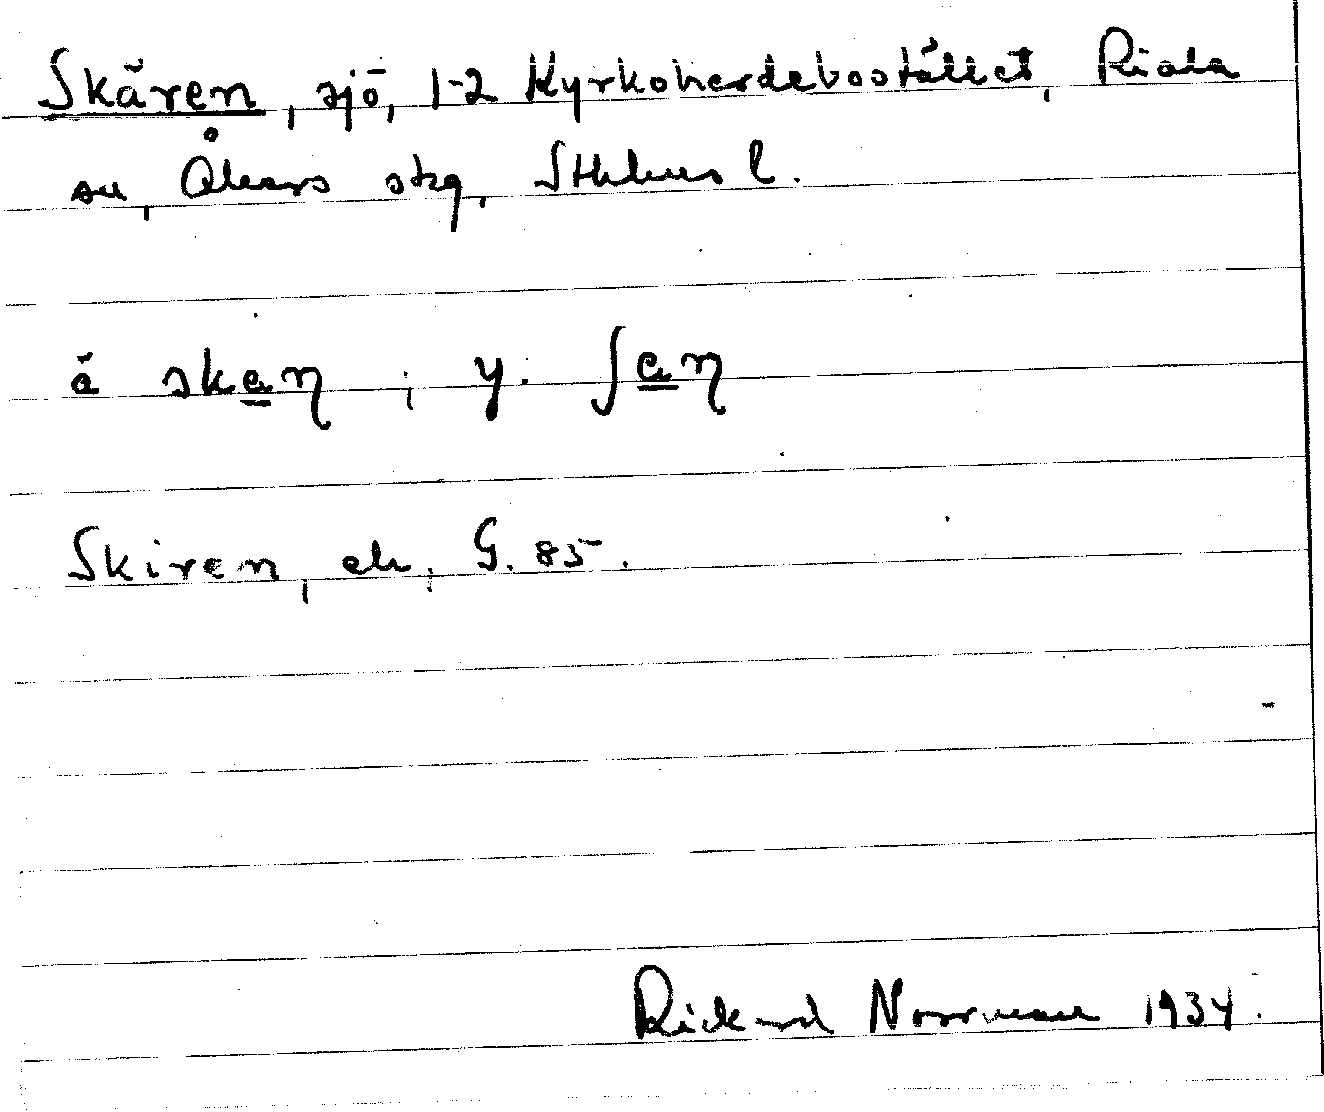 Skären, sjö, 1-2 Kyrkoherdebostället, Riala
sn, Åkers skg, Sthlms l.
ä skaη ; y. ʃaη
Skiren, ek, G. 85.
Rickard Norrman 1934.